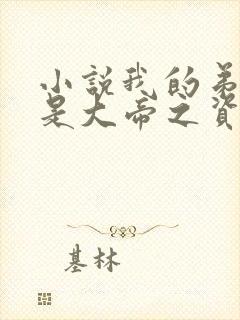 小説我的弟
是大帝之資
基林